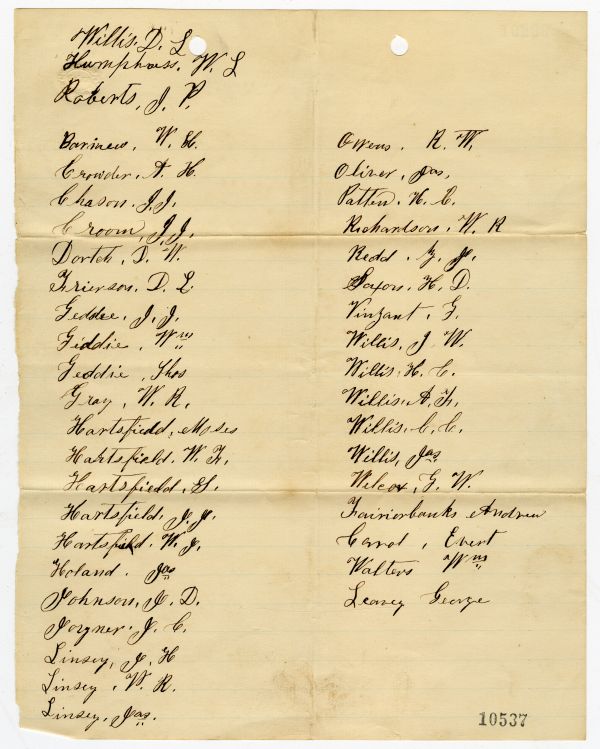 Willis. D. L
Humphress. W. L
Roberts, J. P.
Barinew, W. H.
Crowder, A. H.
Chason. J. J.
Croom, J. J.
Dortch, D. W.
Frierson. D. L.
Geddie, J. J.
Giddie, Wm
Geddie, Thos
Gray, W. R.
Hartsfield, Moses
Hartsfield. W. F.
Hartsfield, H.
Hartsfield, J. J.
Hartsfield. W. J.
Holand. Jas
Johnson, J. D.
Joyner. J. C.
Linsey, J. H
Linsey, W. R.
Linsey, Jas.
Owens. R. W.
Oliver, Jas.
Patten. H. C.
Richardson, W. R
Redd, G. J.
Saxon, H. D.
Vinzant, G.
Willis, J. W.
Willis, H. C.
Willis, A. F.
Willis, C. C.
Willis, Jas
Wilcox, G. W.
Fairiorbanks Andrew
Carrol, Evert
Walters Wm
Leavey George
10537